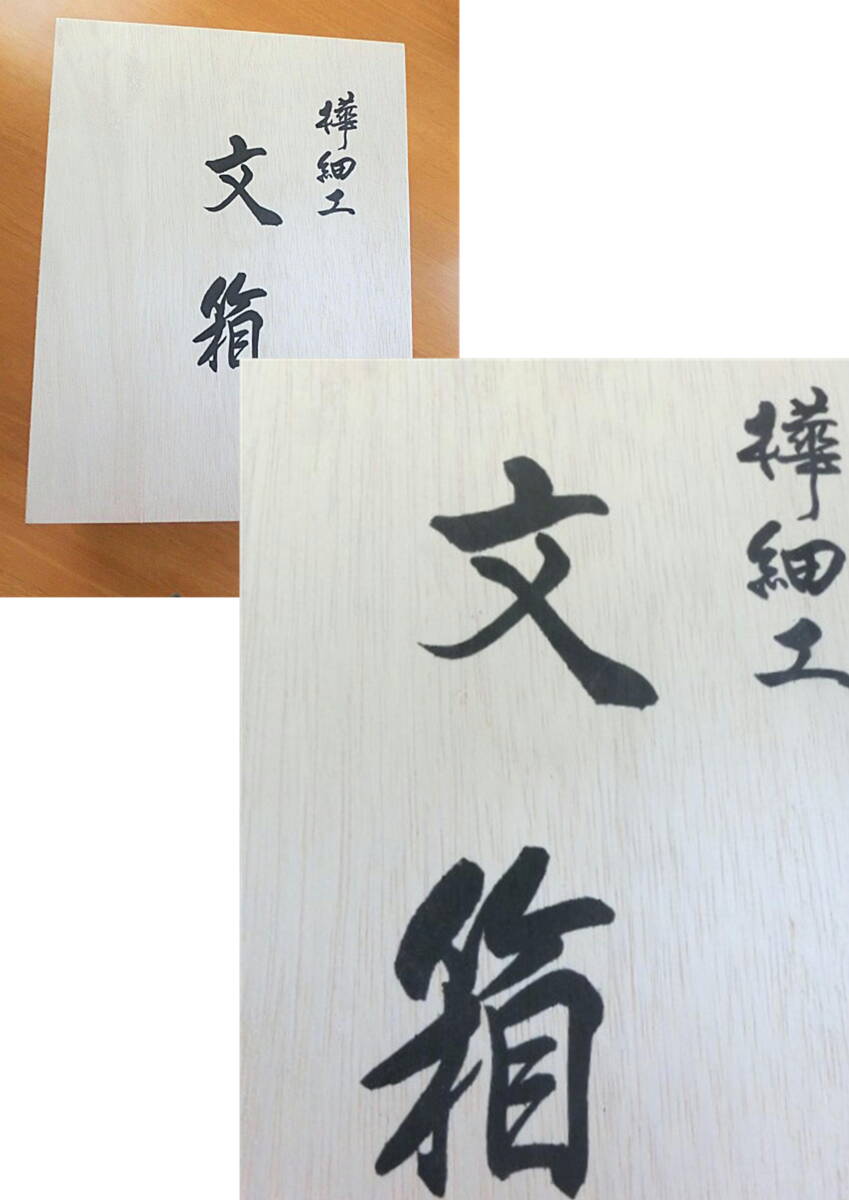 樺細工
文箱
樺細工
文箱